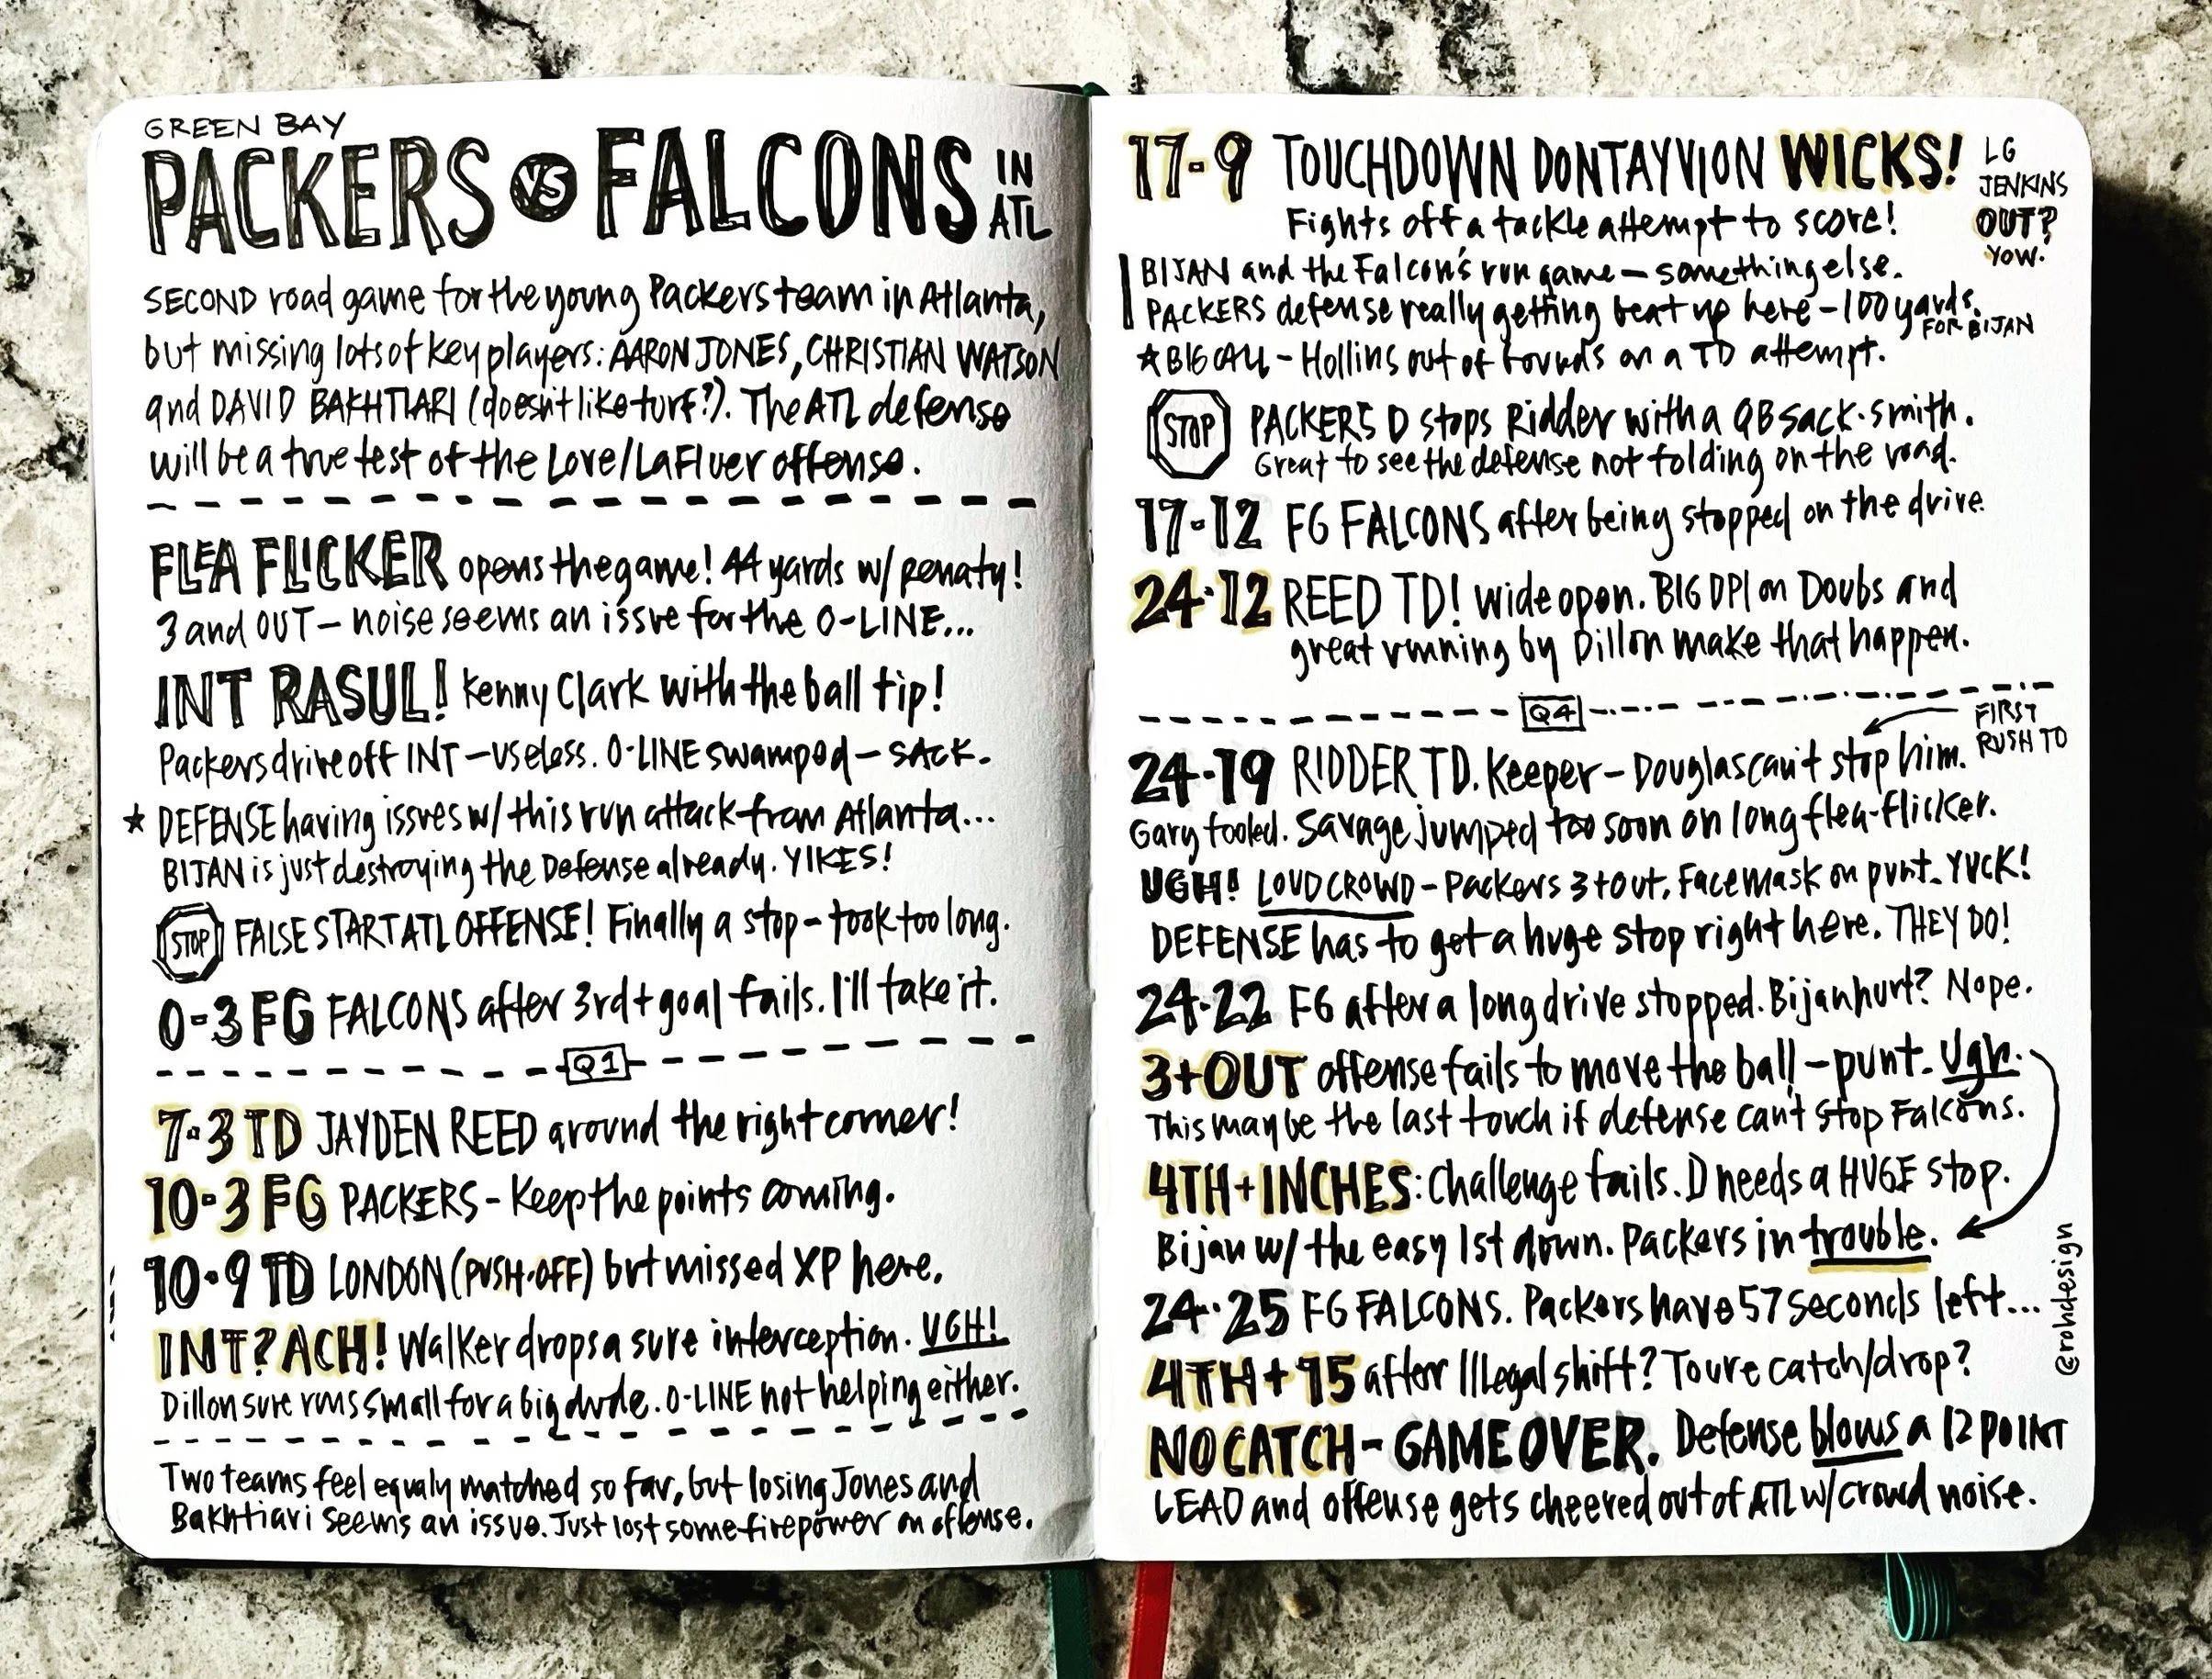 GREEN BAY
PACKERS VS FALCONS IN ATL
SECOND road game for the young Packers team in Atlanta,
but missing lots of key players: AARON JONES, CHRISTIAN WATSON
and DAVID BAKHTIARI (doesn't like turf?). The ATL defense
will be a true test of the Love/LaFluer offense.
FLEA FLICKER opens the game! 44 yards w/ penaty!
3 and OUT – noise seems an issue for the O-LINE...
INT RASUL! Kenny Clark with the ball tip!
Packers drive off INT – useless. O-LINE swamped – SACK.
★ DEFENSE having issues w/ this run attack from Atlanta...
BIJAN is just destroying the Defense already. YIKES!
STOP FALSE START ATL OFFENSE! Finally a stop – took too long.
0-3 FG FALCONS after 3rd + goal fails. I'll take it.
Q1
7-3 TD JAYDEN REED around the right corner!
10-3 FG PACKERS – Keep the points coming.
10-9 TD LONDON (PUSH-OFF) but missed XP here.
INT? ACH! Walker drops a sure interception. UGH!
Dillon sure runs small for a big dude. O-LINE not helping either.
Two teams feel equaly matched so far, but losing Jones and
Bakhtiari seems an issue. Just lost some firepower on offense.
17-9 TOUCHDOWN DONTAYVION WICKS!
Fights off a tackle attempt to score!
LG
JENKINS
OUT?
YOW.
BIJAN and the Falcon's run game – something else.
PACKERS defense really getting beat up here – 100 yards.
FOR BIJAN
★ BIG CALL – Hollins out of bounds on a TD attempt.
STOP PACKERS D stops Ridder with a QB sack. Smith.
Great to see the defense not folding on the road.
17-12 FG FALCONS after being stopped on the drive.
24-12 REED TD! Wide open. BIG DPI on Doubs and
great running by Dillon make that happen.
Q4
FIRST
RUSH TD
24-19 RIDDER TD. Keeper – Douglas can't stop him.
Gary fooled. Savage jumped too soon on long flea-flicker.
UGH! LOUD CROWD – Packers 3 + out. Facemask on punt. YUCK!
DEFENSE has to get a huge stop right here. THEY DO!
24-22 FG after a long drive stopped. Bijan hurt? Nope.
3+OUT offense fails to move the ball – punt. Ugh.
This may be the last touch if defense can't stop Falcons.
4TH + INCHES: Challenge fails. D needs a HUGE stop.
Bijan w/ the easy 1st down. Packers in trouble.
24-25 FG FALCONS. Packers have 57 seconds left...
4TH + 15 after Illegal shift? Toure catch/drop?
NO CATCH – GAME OVER. Defense blows a 12 POINT
LEAD and offense gets cheered out of ATL w/ crowd noise.
@rohdesign